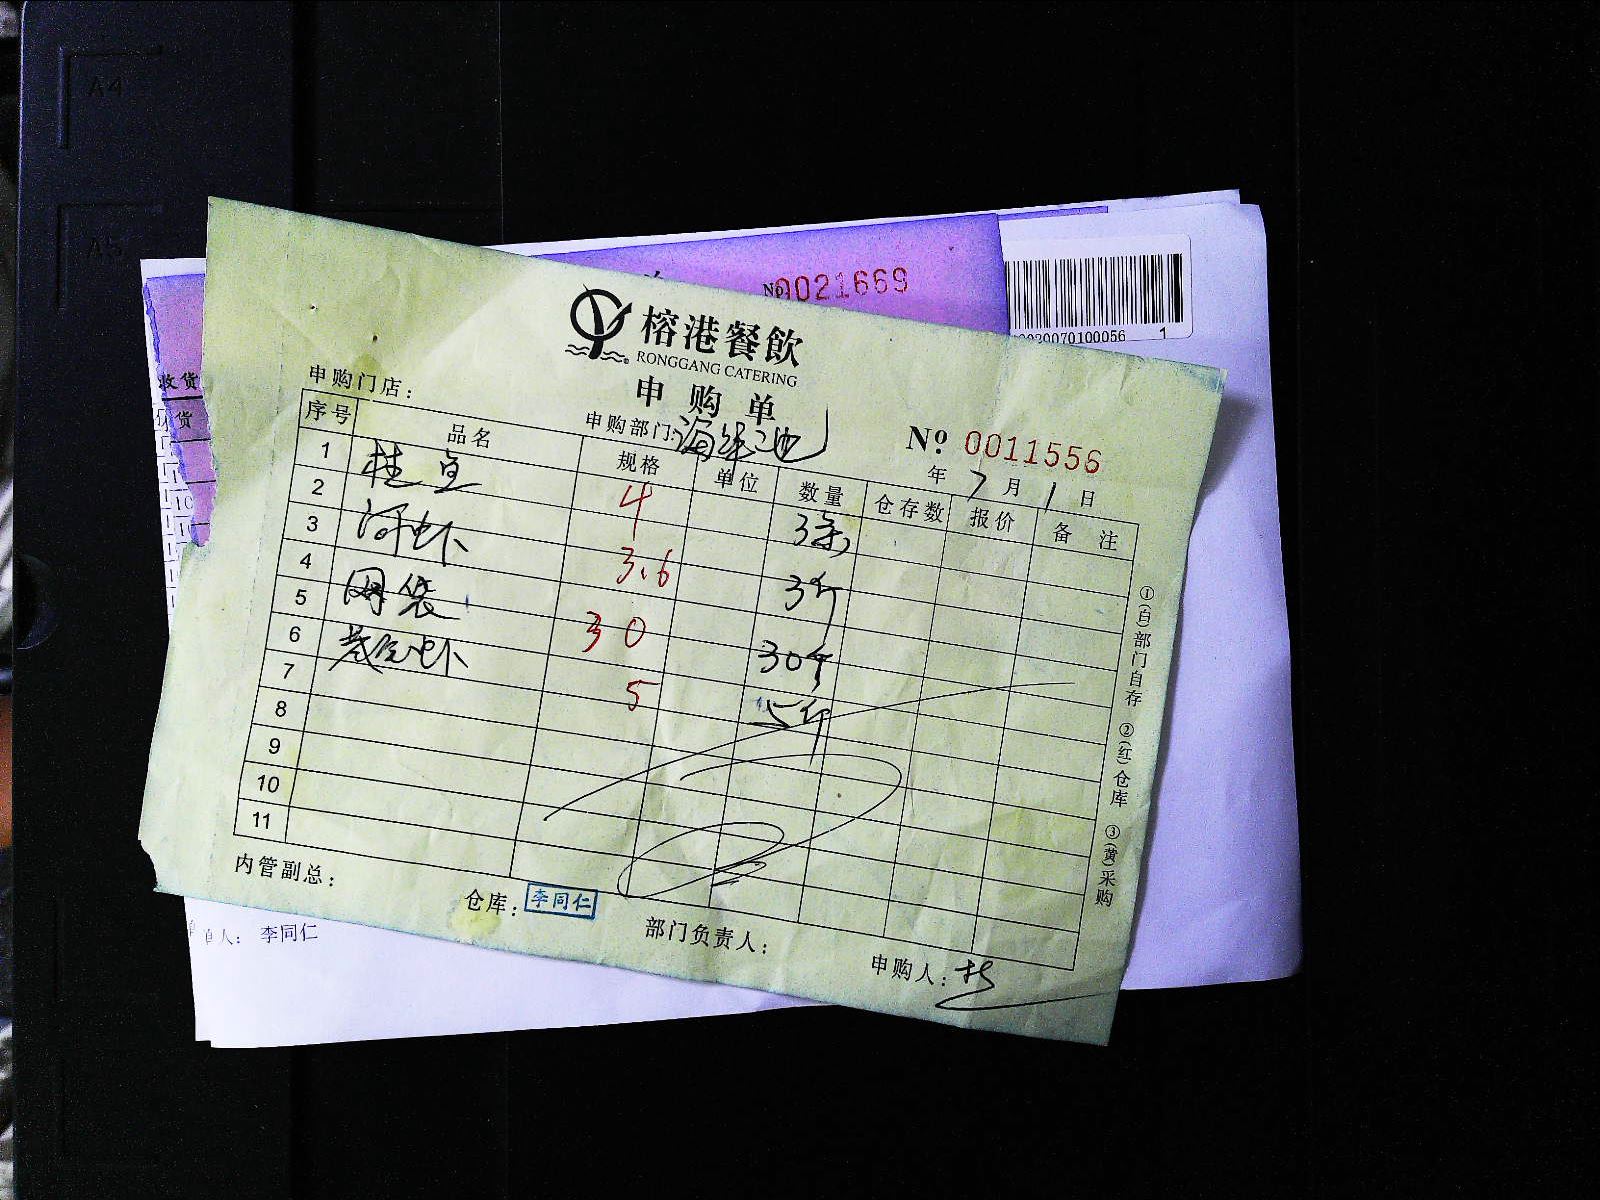 A4
A5
No 0021669
0020070100056 1
收货
货
榕港餐飲
RONGGANG CATERING
申购单
申购门店：
申购部门：海鲜池
No. 0011556
年 7 月 1 日
序号 品名 规格 单位 数量 仓存数 报价 备注
1 桂鱼 4 3条
2
3 河虾 3.6 3斤
4 网袋 30 30个
5
6 基尾虾 5 5斤
7
8
9
10
11
①(白)部门自存 ②(红)仓库 ③(黄)采购
内管副总：
仓库：李同仁
部门负责人：
申购人：
单人： 李同仁